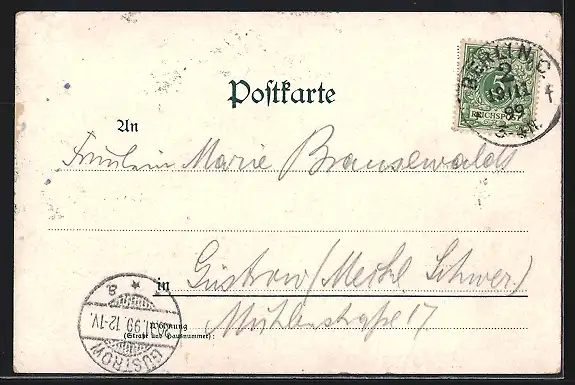 Postkarte
BERLIN. C.
2
19/11
99
3-4N.
5
REICHSPOST
An
Fräulein Marie Brausewaldt
in Güstrow (Meckl Schwer)
Wohnung
(Straße und Hausnummer):
Mühlenstraße 17
GÜSTROW
99. 12-1V.